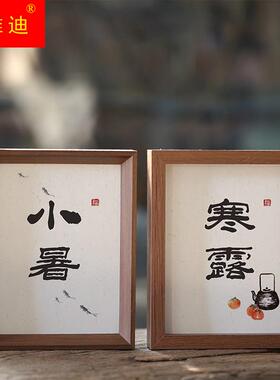 迪®
小
暑
寒
露